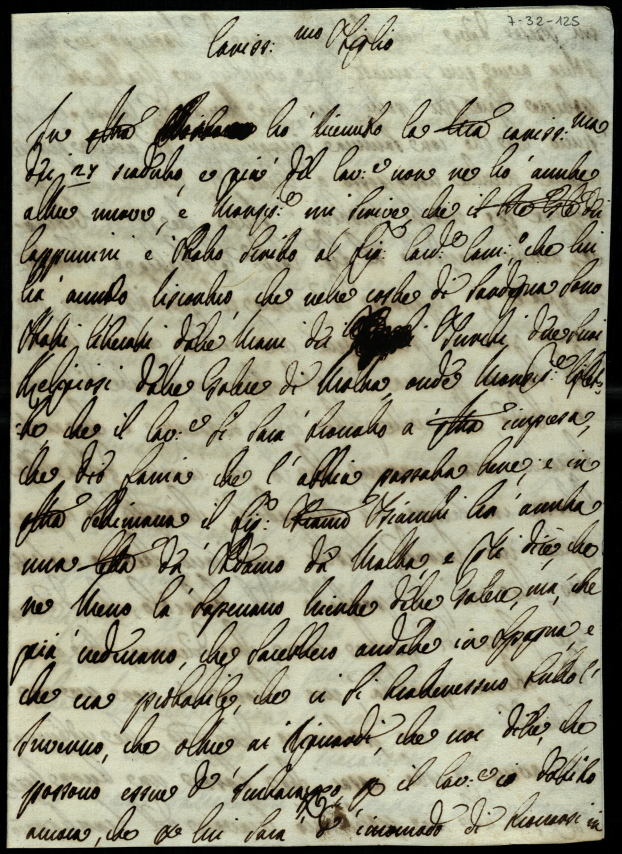 7-32-125
Cariss:mo Figlio
In q̃ta ho' ricevuto la tua cariss:ma
dei 27 scaduto, e più del Cav:e non ne hò avute
altre nuove, e Monsig:e mi scrive, che il
Cappuccini è stato scritto al Sig: Card:e Cam:o che lui
hà avuto riscontro che nelle coste di Sardegna sono
stati liberati dalle mani dei Turchi due suoi
Religiosi dalle Galere di Malta, onde Monsig:e
che il Cav:e si sarà trovato a q̃ta impresa,
che Dio faccia che l'abbia passata bene, e in
q̃ta settimana il Sig: Franchi hà avuta
una da Adamo da Malta, e gli dice, che
ne meno là sapevano niente delle Galere, mà, che
più vedevano, che sarebbero andate in Spagna, e
che era probabile, che vi si trattenessero tutto l'
Inverno, che oltre ai riguardi, che voi dite, che
possono essere d' il Cav:e io dubito
ancora, che p lui sarà d'incomodo di trovarsi in